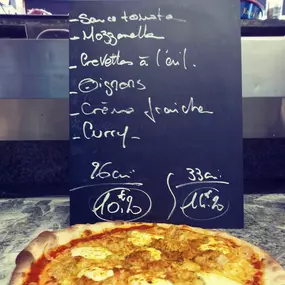 - Sauce tomate
- Mozzarella
- Crevettes à l'ail.
- Oignons
- Crème fraiche
- Curry
26cm 33cm
10.20